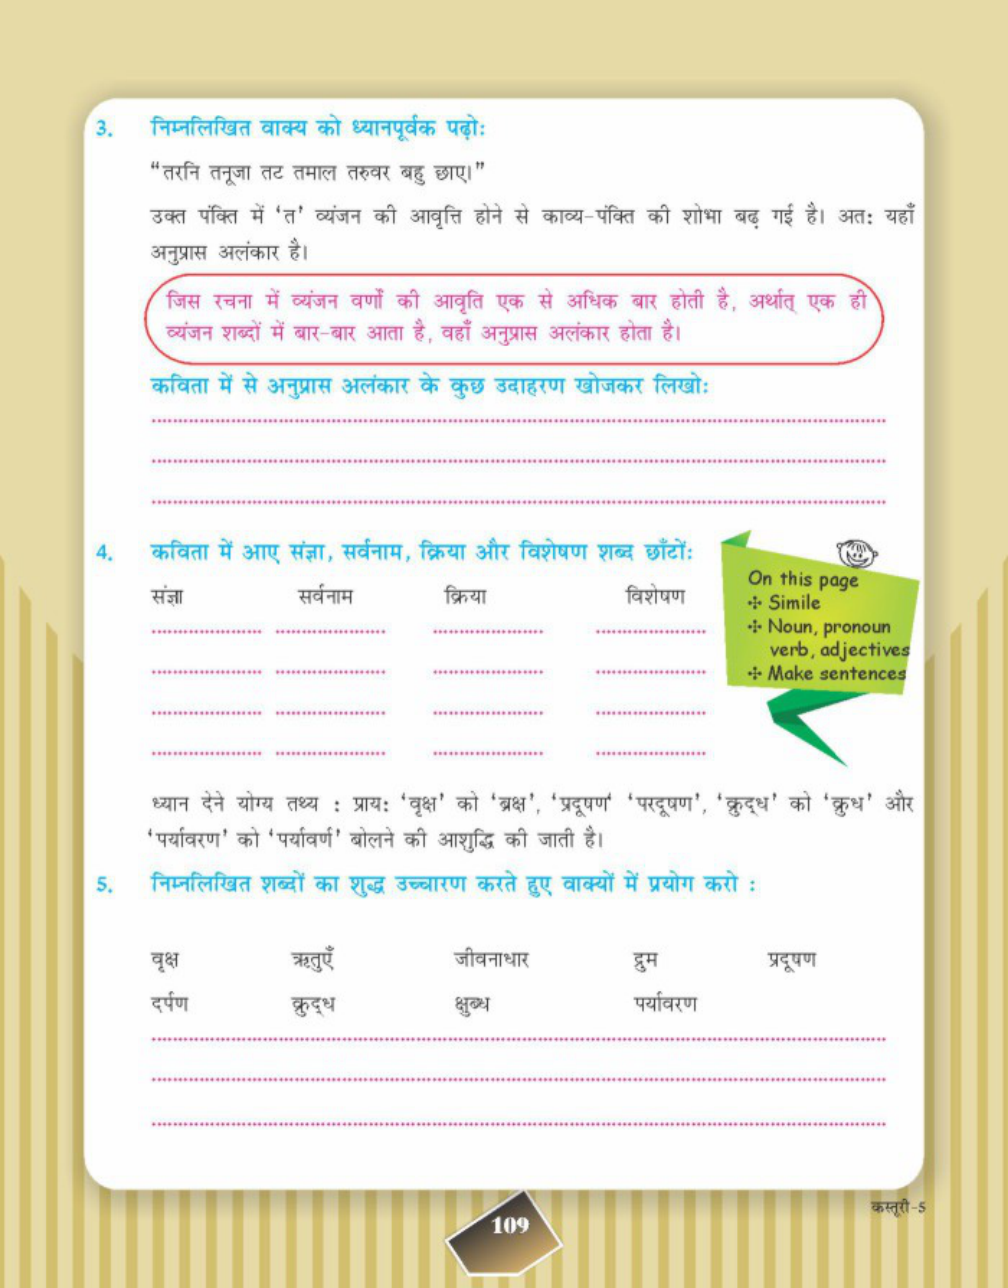 3. निम्नलिखित वाक्य को ध्यानपूर्वक पढ़ो:
“तरनि तनूजा तट तमाल तरुवर बहु छाए।”
उक्त पंक्ति में ‘त’ व्यंजन की आवृत्ति होने से काव्य-पंक्ति की शोभा बढ़ गई है। अत: यहाँ
अनुप्रास अलंकार है।
जिस रचना में व्यंजन वर्णों की आवृति एक से अधिक बार होती है, अर्थात् एक ही
व्यंजन शब्दों में बार-बार आता है, वहाँ अनुप्रास अलंकार होता है।
कविता में से अनुप्रास अलंकार के कुछ उदाहरण खोजकर लिखो:
4. कविता में आए संज्ञा, सर्वनाम, क्रिया और विशेषण शब्द छाँटों:
संज्ञा सर्वनाम क्रिया विशेषण
On this page
✣ Simile
✣ Noun, pronoun
verb, adjectives
✣ Make sentences
ध्यान देने योग्य तथ्य : प्राय: ‘वृक्ष’ को ‘ब्रक्ष’, ‘प्रदूषण‘ ‘परदूषण’, ‘क्रुद्ध’ को ‘क्रुध’ और
‘पर्यावरण’ को ‘पर्यावर्ण’ बोलने की आशुद्धि की जाती है।
5. निम्नलिखित शब्दों का शुद्ध उच्चारण करते हुए वाक्यों में प्रयोग करो :
वृक्ष ऋतुएँ जीवनाधार द्रुम प्रदूषण
दर्पण क्रुद्ध क्षुब्ध पर्यावरण
कस्तूरी-5
109